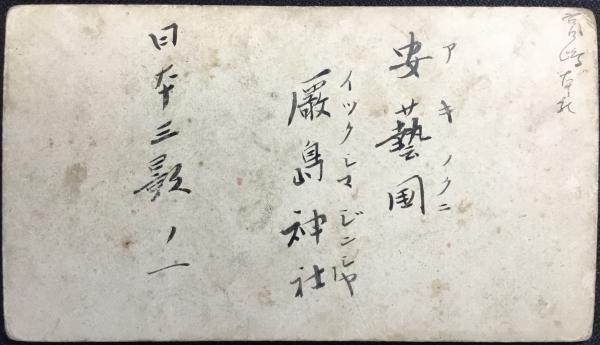 宮嶋本社
アキノクニ
安藝国
イツクシマ ジンシヤ
嚴島神社
日本三影ノ一